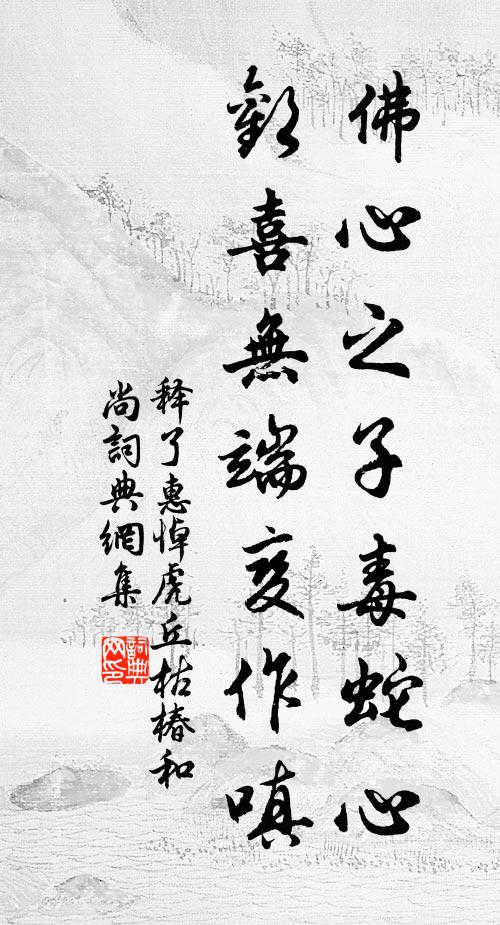 佛心之子毒蛇心
歡喜無端变作嗔
释了惠悼虎丘枯椿和
尚詞典網集
詞典网印